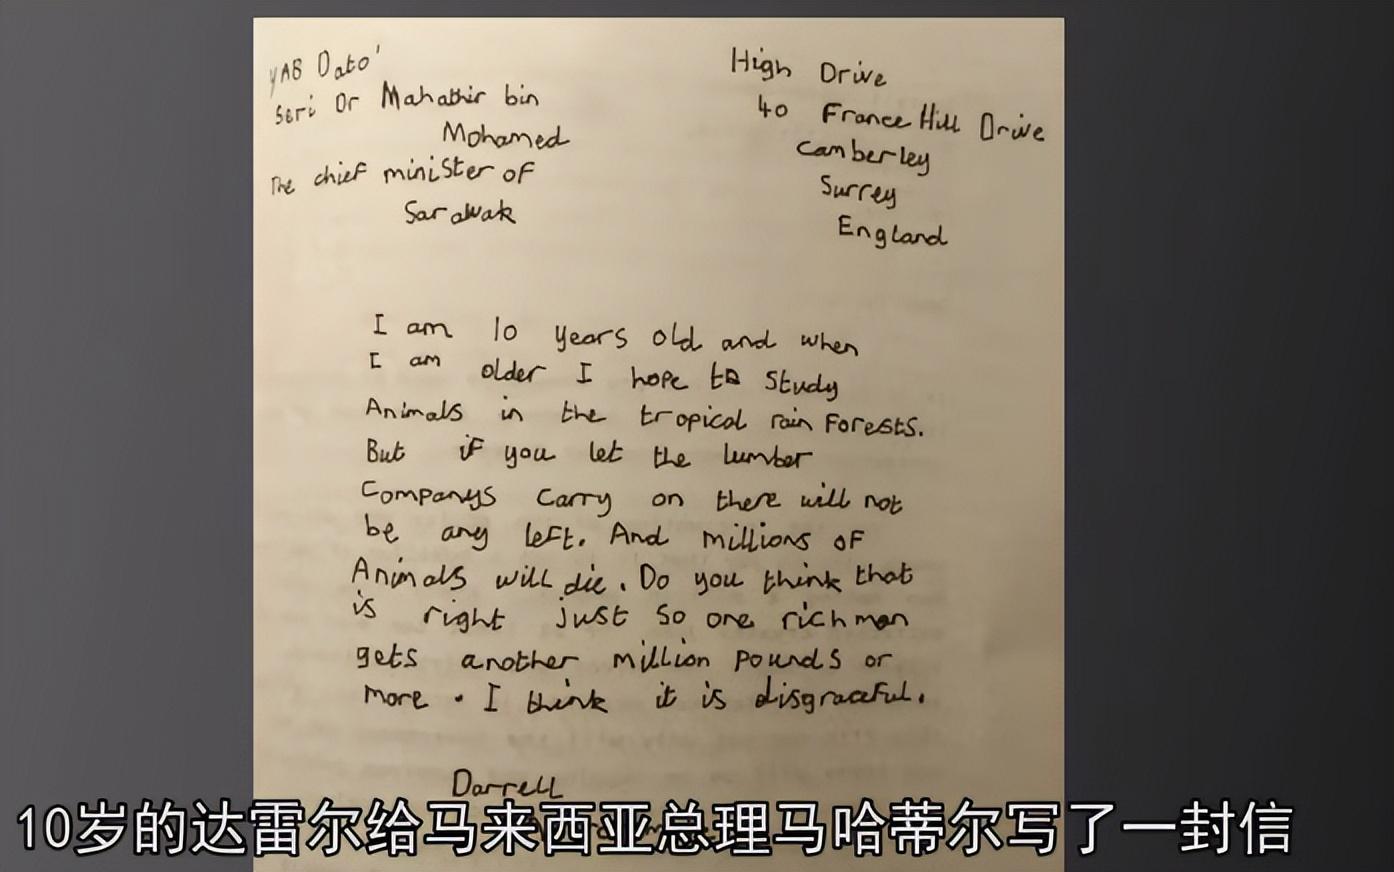 YAB Dato'
Seri Dr Mahathir bin
Mohamed
The chief minister of
Sarawak
High Drive
40 France Hill Drive
Camberley
Surrey
England
I am 10 years old and when
I am older I hope to Study
Animals in the tropical rain Forests.
But if you let the lumber
Companys Carry on there will not
be any left. And millions of
Animals will die. Do you think that
is right just so one rich man
gets another million pounds or
more. I think it is disgraceful.
Darrell
10岁的达雷尔给马来西亚总理马哈蒂尔写了一封信